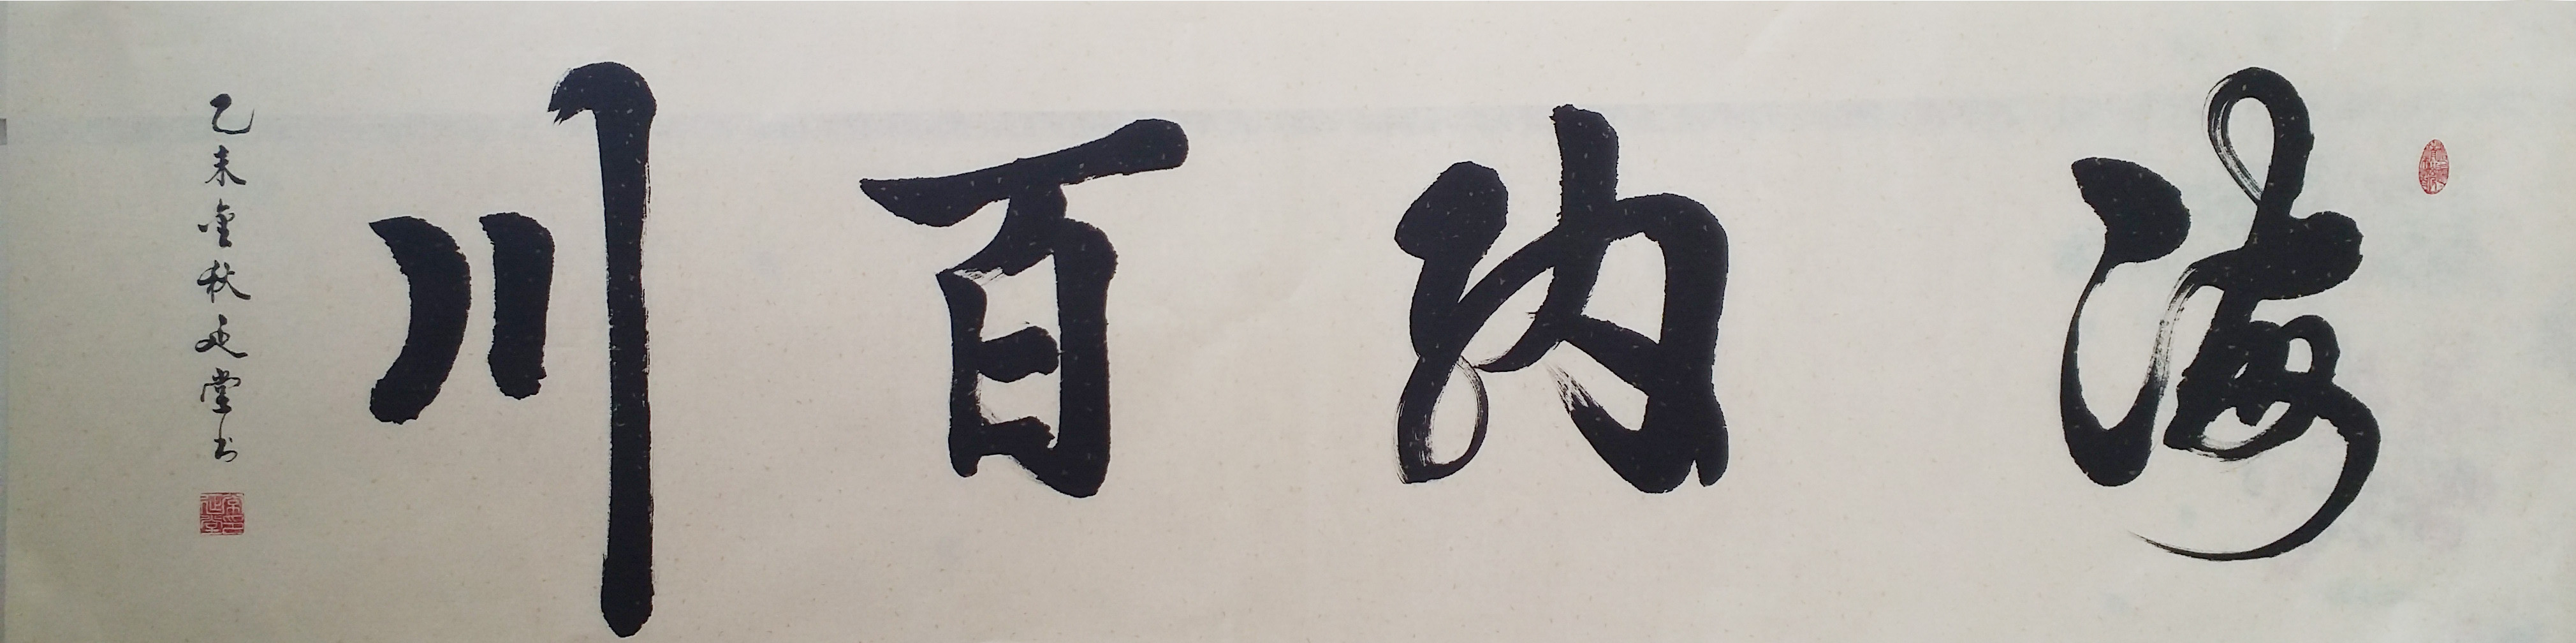 海纳百川
乙未金秋延堂书